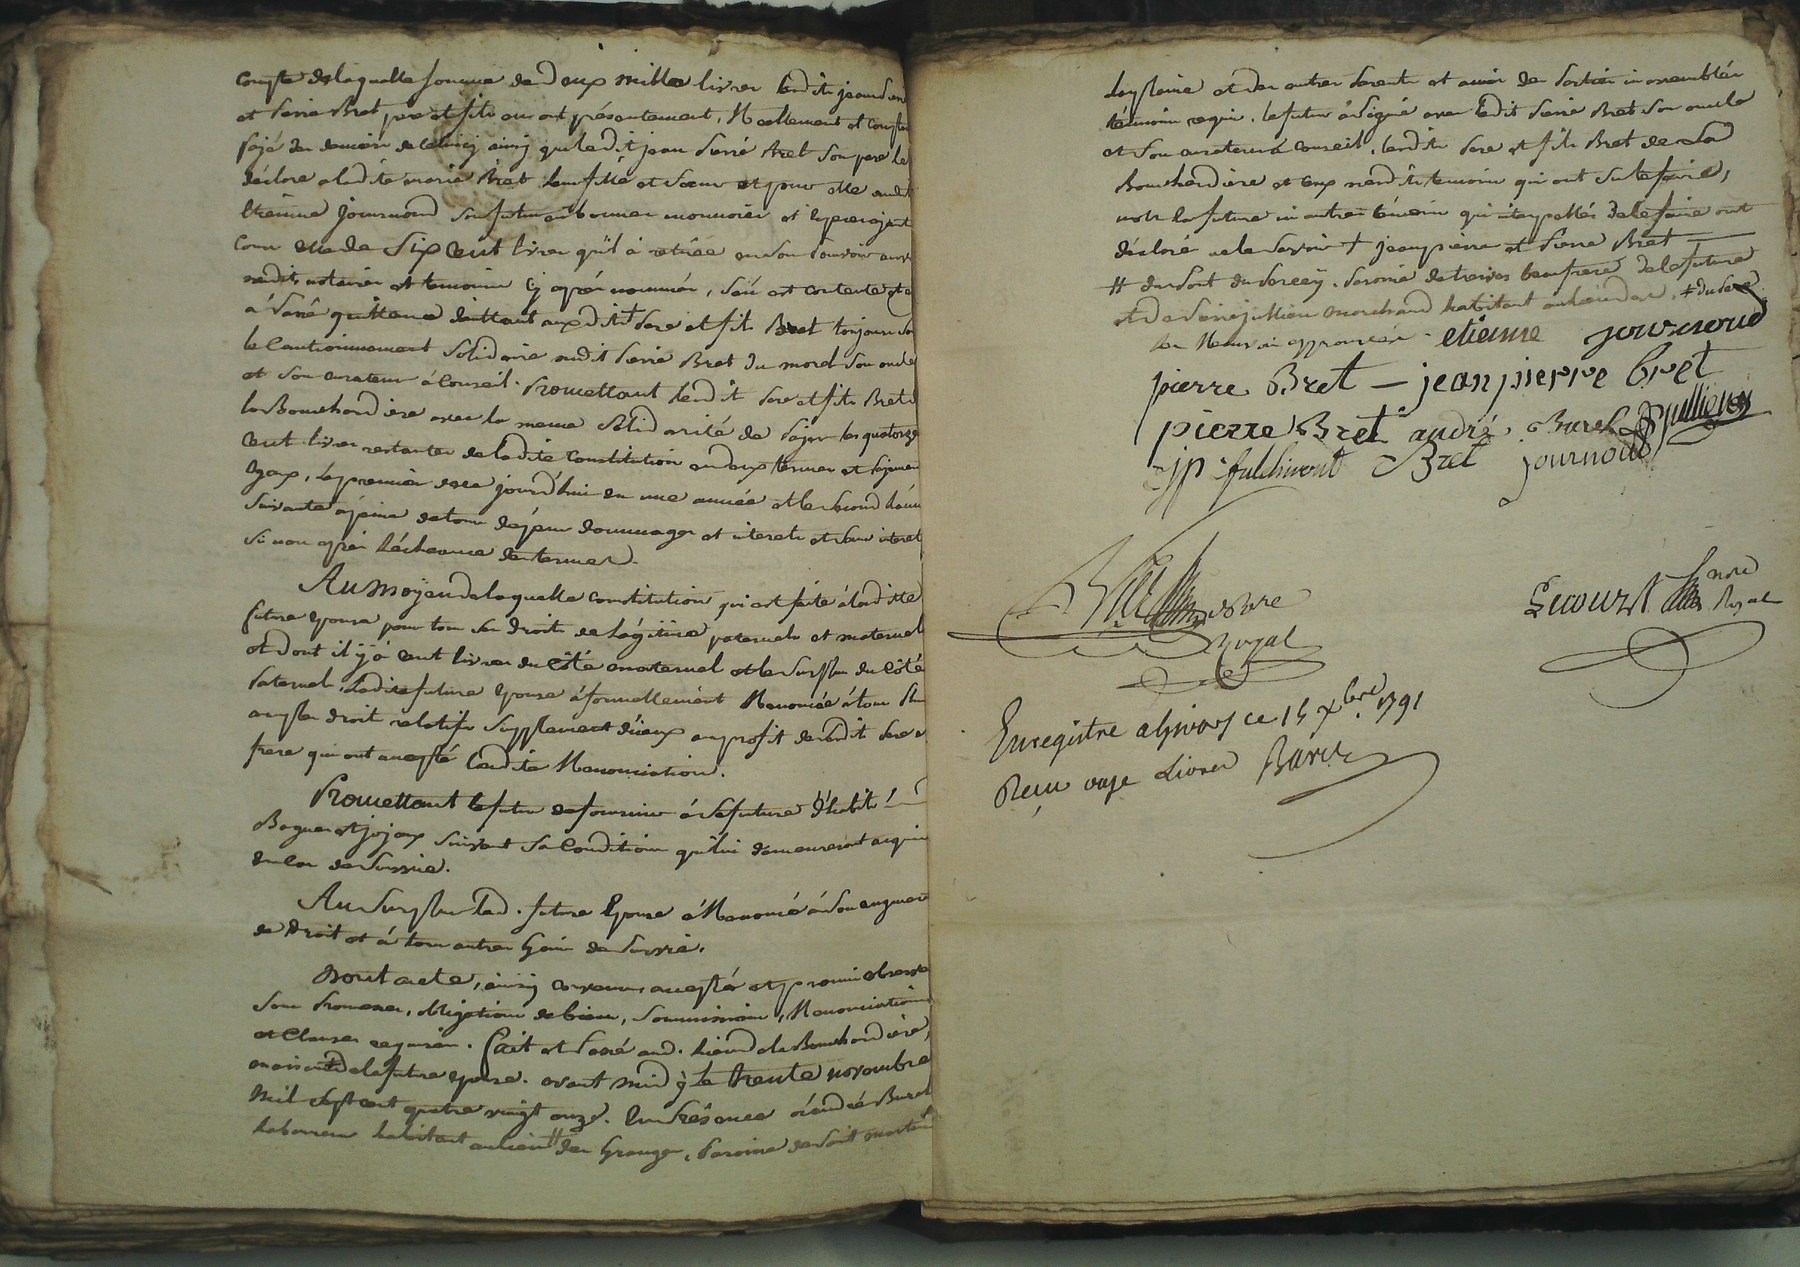 compte de laquelle somme de deux mille livres lesdits jean pierre
et pierre Bret pere et fils ont présentement, Réellement et comptant
payé des deniers de celuicy ainsy que ledit jean pierre Bret son pere le
déclare a ladite marie Bret leur fille et soeur et pour elle audit
Etienne journoud son futur en bonnes monnoies et espèces ayant
cours celle de Six cent livres qu'il à retirée en son pouvoir au vu
nesdits notaires et temoins cy après nommés, s'en est contenté et
à passé quittance d'autant auxdits pere et fils Bret toujours sous
le Cautionnement Solidaire dudit pierre Bret du morel son oncle
et son curateur à Conseil. Promettant lesdits pere et fils Bret de
la Bouchardière avec la meme Solidarité de payer les quatorze
cent livres restantes de ladite Constitution en deux termes et payements
égaux, le premier dece jourd'hui en une année et le second l'année
suivante à peine de tous dépens dommages et interets et sans interet
si non après l'écheance des termes.
Au Moÿen de laquelle constitution qui est faite à ladite
future épouse pour tous ses droits de légitime paternels et maternels
et dont il y à cent livres du Côté maternel et le surplus du Côté
paternel, ladite future épouse à formellement Renoncée à tous plus
amples droits relatifs supplement d'iceux au profit desdits pere et
frere qui ont accepté laditte Renonciation.
Promettant le futur de fournir à sa future d'habits
Bagues et joyaux suivant sa Condition qui lui demeureront acquis
en cas de survie.
Au Surplus lad. future Epouse à Renoncé à son augment
de droit et à tous autres Gains de survie.
Dont acte, ainsy convenu, accepté et promis observer
sous promesses, obligations de biens, soumissions, Renonciations
et Clauses requises. Fait et Passé aud. lieu de la Bouchardière,
maison de la future épouse. avant midy le trente novembre
Mil sept cent quatre vingt onze. En Présence d'andré Burel
laboureur habitant au lieu # des Granges, paroisse de saint martin
et des autres parents et amis des parties icy assemblés
témoins requis. le futur à signé avec ledit pierre Bret son oncle
et son curateur à Conseil, lesdits pere et fils Bret de La
Bouchardière et ceux nesdits temoins qui ont su le faire,
non la future ni autres témoins qui interpellés de le faire ont
déclaré ne le savoir + jean pierre et pierre Bret
# du paroisse beaufrere de la future
et de pierre jullien marchand habitant au lieu
les Renvois approuvés - etienne journoud
pierre Bret - jean pierre bret
pierre Bret andré Burel jullien
jp fulchiront Bret journoud
notre
Royal
Lecourt
nore
Royal
Enregistré ce 15 xbre 1791
Reçu onze Livres Barrer